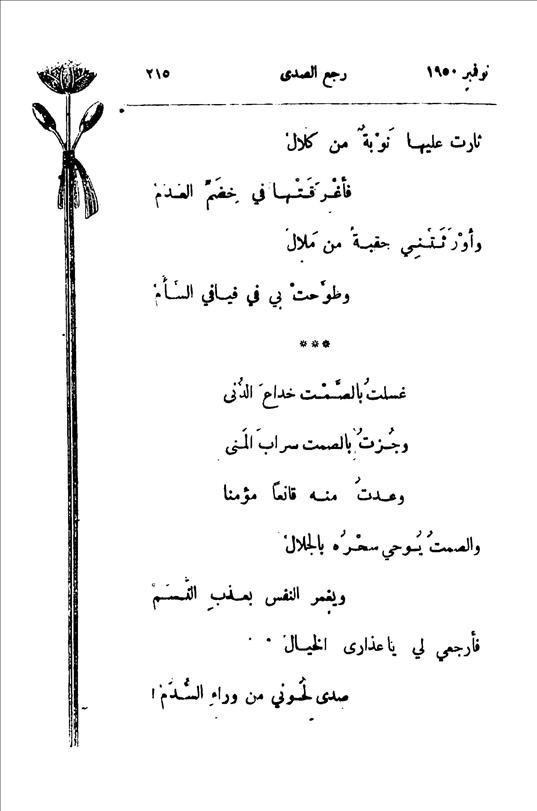 نوفمبر ١٩٥٠ رجع الصدى ٢١٥
ثارت عليها نَوْبةٌ من كلالْ
فأغْرَقَتْها في خِضَمِّ العَدَمْ
وأوْرَثَتْنِي حقبةً من مَلالْ
وطوَّحتْ بي في فيافي السَّأَمْ
***
غسلتُ بالصَّمْت خداعَ الدُنى
وجُزتُ بالصمت سرابَ المَنى
وعدتُ منه قانعًا مؤمنا
والصمتُ يُوحي سحْرُه بالجلالْ
ويغمر النفس بعذبِ النَّغَمْ
فأرجعي لي يا عذارى الخيالْ . .
صدى لُحوني من وراءِ السُّدَمْ !